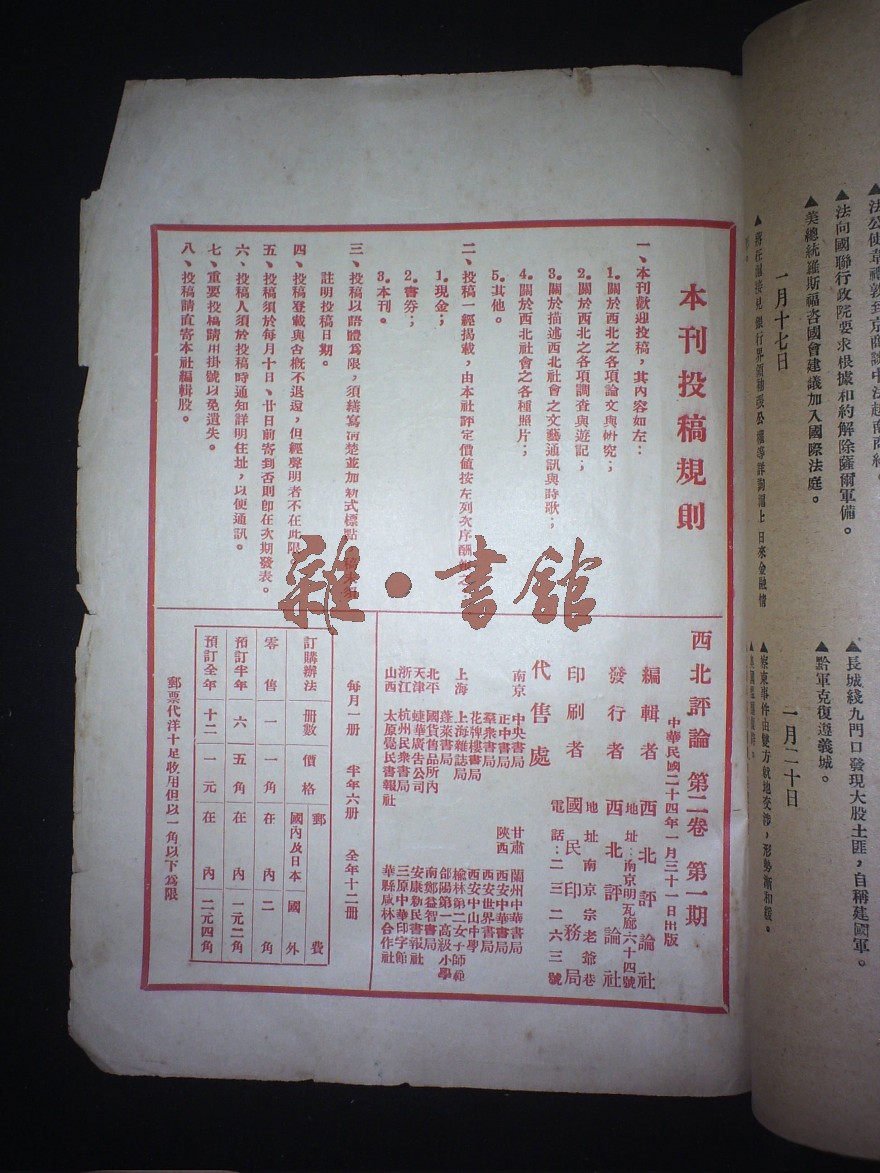 ▲法向國聯行政院要求根據和約解除薩爾軍備。
▲美總統羅斯福咨國會建議加入國際法庭。
一月十七日
▲長城綫九門口發現大股土匪，自稱建國軍。
▲黔軍克復遵義城。
一月二十日
▲察東事件由雙方就地交涉，形勢漸和緩。
本刊投稿規則
一、本刊歡迎投稿，其內容如左：
1。關於西北之各項論文與研究；
2。關於西北之各項調查與遊記；
3。關於描述西北社會之文藝通訊與詩歌；
4。關於西北社會之各種照片；
5。其他。
二、投稿一經揭載，由本社評定價值按左列次序酬
1。現金；
2。書券；
3。本刊。
三、投稿以語體為限，須繕寫清楚並加新式標點
註明投稿日期。
四、投稿登載與否概不退還，但經聲明者不在此限
五、投稿須於每月十日、廿日前寄到否則卽在次期發表。
六、投稿人須於投稿時通知詳明住址，以便通訊。
七、重要投稿請用掛號以免遺失。
八、投稿請直寄本社編輯股。
西北評論 第二卷 第一期
中華民國二十四年一月三十一日出版
編輯者 西北評論社
地址：南京明瓦廊六十四號
發行者 西北評論社
地址南京宗老爺巷
印刷者 國民印務局
電話：二三二六三號
代售處
南京 中央書局
正中書局
羣衆書局
花牌樓書局
上海 上海雜誌局
蓬萊書局
北平 國貨售品所內
天津 婕華廣告公司
浙江 杭州民衆書局
山西 太原覺民書報社
甘肅 蘭州中華書局
陝西 西安中華書局
西安世界書局
西安中山中學
榆林第二女子師範
郃陽第一高級小學
南鄭益智書局
安康新民書報社
三原中華印字館
華縣啟林合作社
每月一册 半年六册 全年十二册
訂購辦法 册數 價格 郵費
國內及日本 國外
零售 一 一角 在內 二角
預訂半年 六 五角 在內 一元二角
預訂全年 十二 一元 在內 二元四角
郵票代洋十足收用但以一角以下爲限
雜·書館